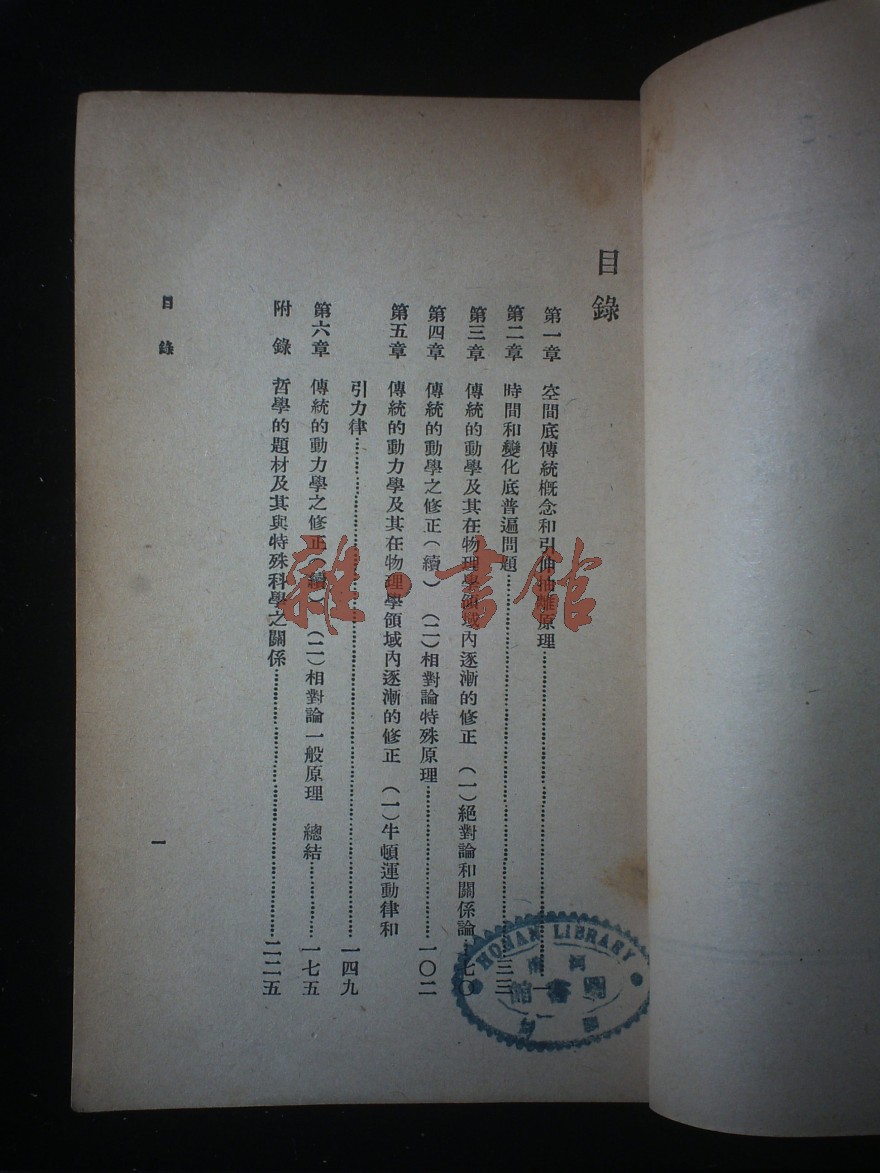 目錄
第一章　空間底傳統概念和引伸抽離原理……一
第二章　時間和變化底普遍問題……三三
第三章　傳統的動學及其在物理學領域內逐漸的修正　（一）絕對論和關係論…七〇
第四章　傳統的動學之修正（續）　（二）相對論特殊原理……一〇二
第五章　傳統的動力學及其在物理學領域內逐漸的修正　（一）牛頓運動律和
引力律……一四九
第六章　傳統的動力學之修正（續）　（二）相對論一般原理　總結……一七五
附　錄　哲學的題材及其與特殊科學之關係……二二五
目　錄
一
HONAN LIBRARY
雜·書館